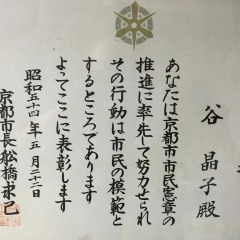 谷 晶子 殿
あなたは京都市市民憲章の
推進に率先して努力せられ
その行動は市民の模範と
するところであります
よってここに表彰します
昭和五十四年五月二十二日
京都市長 舩橋求己